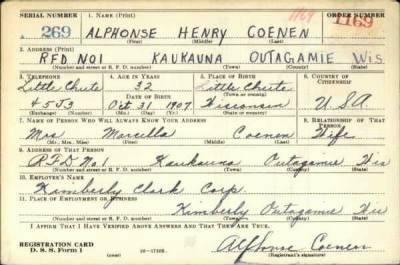 SERIAL NUMBER 1. NAME (Print) 1169 ORDER NUMBER
269 ALPHONSE HENRY COENEN 1169
(First) (Middle) (Last)
2. ADDRESS (Print)
RFD NO1 KAUKAUNA OUTAGAMIE Wis
(Number and street or R. F. D. number) (Town) (County) (State)
3. TELEPHONE 4. AGE IN YEARS 5. PLACE OF BIRTH 6. COUNTRY OF CITIZENSHIP
Little Chute 32 Little Chute
DATE OF BIRTH (Town or county)
45J3 Oct. 31 1907 Wisconsin U.S.A.
(Exchange) (Number) (Mo.) (Day) (Yr.) (State or country)
7. NAME OF PERSON WHO WILL ALWAYS KNOW YOUR ADDRESS 8. RELATIONSHIP OF THAT PERSON
Mrs Marcella Coenen Wife
(Mr., Mrs., Miss) (First) (Middle) (Last)
9. ADDRESS OF THAT PERSON
RFD No. 1 Kaukauna Outagamie Wis
(Number and street or R. F. D. number) (Town) (County) (State)
10. EMPLOYER'S NAME
Kimberly Clark Corp.
11. PLACE OF EMPLOYMENT OR BUSINESS
Kimberly Outagamie Wis
(Number and street or R. F. D. number) (Town) (County) (State)
I AFFIRM THAT I HAVE VERIFIED ABOVE ANSWERS AND THAT THEY ARE TRUE.
REGISTRATION CARD
D. S. S. Form 1 Alphonse Coenen
(Registrant's signature)